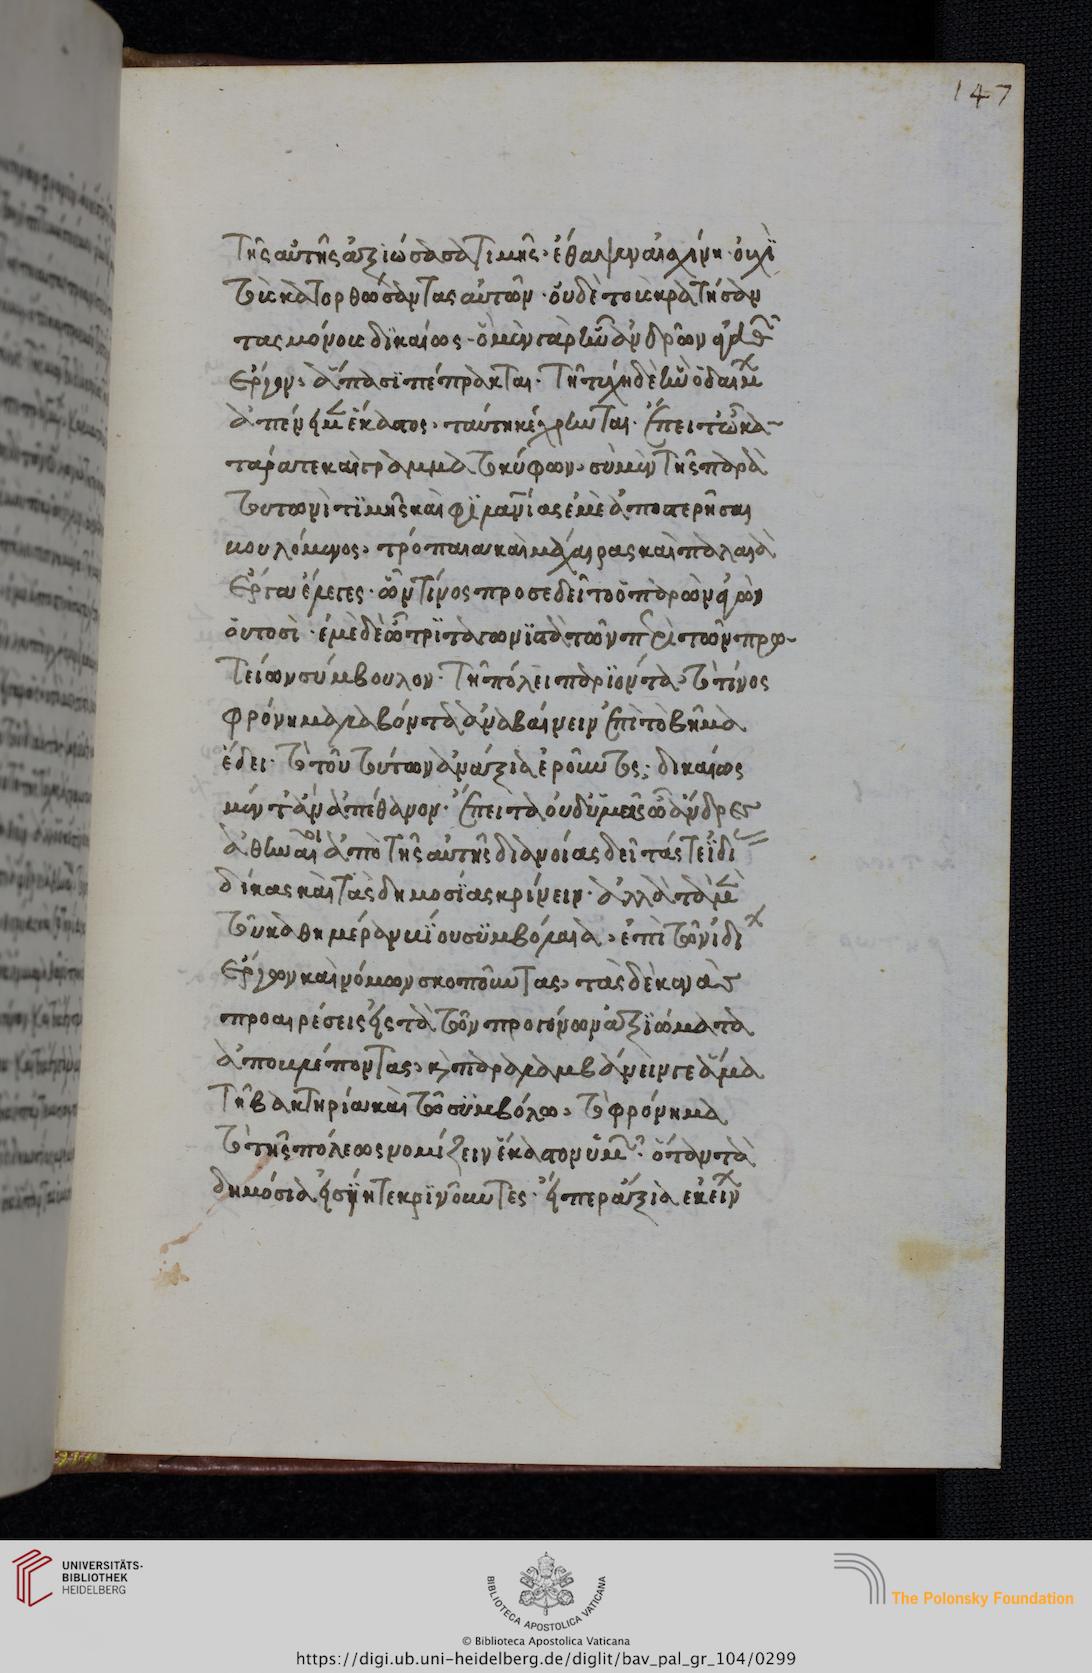 147
τῆς αὐτῆς ἀξιώσασα τιμῆς, ἔθαψεν αἰσχίνη· οὐχὶ
τοὺς κατορθώσαντας αὐτῶν· οὐδὲ τοὺς κρατήσαν
τας μόνους δικαίως· ὃ μὲν γὰρ ἦν ἀνδρῶν ἀγαθῶν
ἔργον, ἅπασι πέπρακται· τῆ τύχη δὲ ἣν ὁ δαίμων
ἀπένειμεν ἑκάστοις, ταύτη κέχρηνται· ἔπειτ' ὦ κα
τάρατε καὶ γραμματοκύφων, σὺ μὲν τῆς παρὰ
τουτωνὶ τιμῆς καὶ φιλανθρωπίας ἐμὲ ἀποστερῆσαι
βουλόμενος, τρόπαια καὶ μάχας καὶ παλαιὰ
ἔργα ἔλεγες· ὧν τίνος προσεδεῖτο ὁ παρὼν ἀγὼν
οὑτοσί· ἐμὲ δὲ ὦ τριταγωνιστὰ τῶν περὶ τῶν πρω
τείων σύμβουλον τῆ πόλει παριόντα, τὸ τίνος
φρόνημα λαβόντα ἀναβαίνειν ἐπὶ τὸ βῆμα
ἔδει· τὸ τοῦ τούτων ἀνάξια ἐροῦντος; δικαίως
μέν τ' ἂν ἀπέθανον· ἔπειτα οὐδ' ὑμᾶς ὦ ἄνδρες
ἀθηναῖοι ἀπὸ τῆς αὐτῆς διανοίας δεῖ τάς τε ἰδίας
δίκας καὶ τὰς δημοσίας κρίνειν· ἀλλὰ τὰ μὲν
τοῦ καθ' ἡμέραν βίου συμβόλαια, ἐπὶ τῶν ἰδίων
ἔργων καὶ νόμων σκοποῦντας, τὰς δὲ κοινὰς
προαιρέσεις εἰς τὰ τῶν προγόνων ἀξιώματα
ἀποβλέποντας, καὶ παραλαμβάνειν γε ἅμα
τῆ βακτηρία καὶ τῶ συμβόλω, τὸ φρόνημα
τὸ τῆς πόλεως νομίζειν ἕκαστον ὑμῶν· ὅταν τὰ
δημόσια εἰσίητε κρινοῦντες· εἴπερ ἄξια ἐκείνων
UNIVERSITÄTS-
BIBLIOTHEK
HEIDELBERG
BIBLIOTECA APOSTOLICA VATICANA
The Polonsky Foundation
© Biblioteca Apostolica Vaticana
https://digi.ub.uni-heidelberg.de/diglit/bav_pal_gr_104/0299